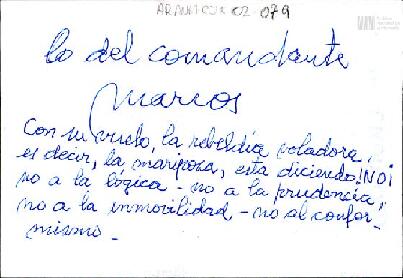 079
lo del comandante
Marcos
Con su vuelo, la rebeldía voladora,
es decir, la mariposa, está diciendo ¡NO¡
no a la lógica - no a la prudencia,
no a la inmovilidad - no al confor-
mismo -